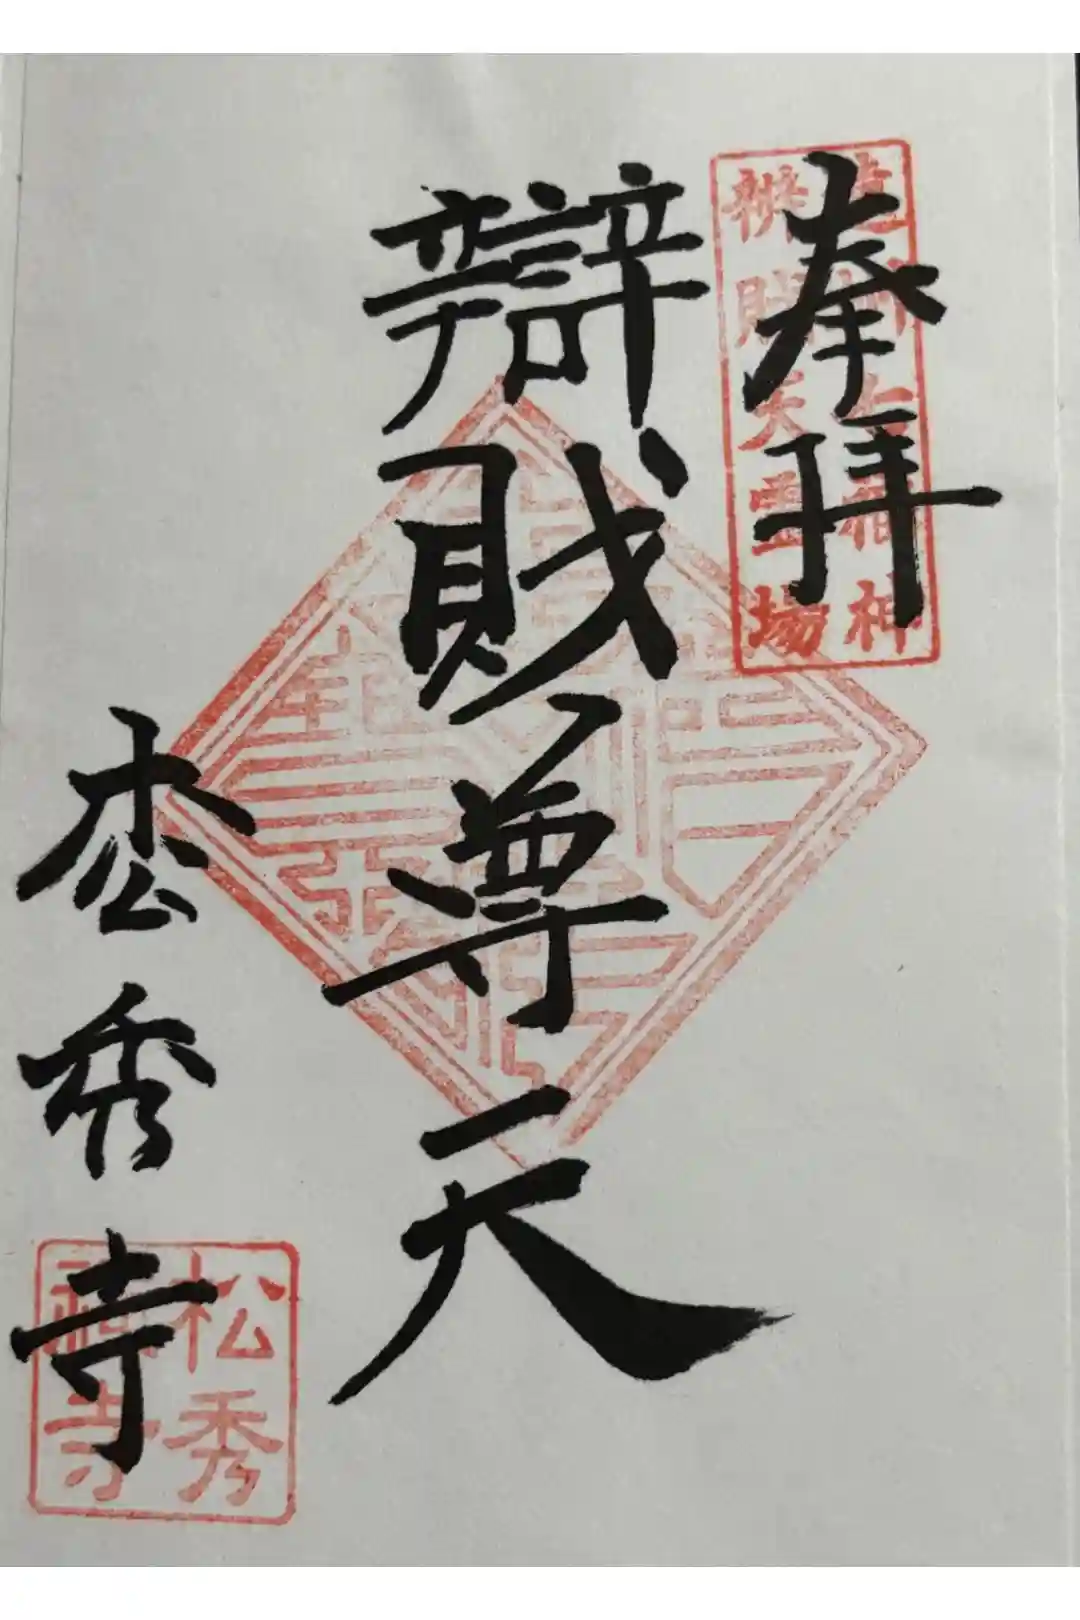 奉拝
遠州七福神
辨財天霊場
辯財尊天
松秀寺
松秀
禅寺